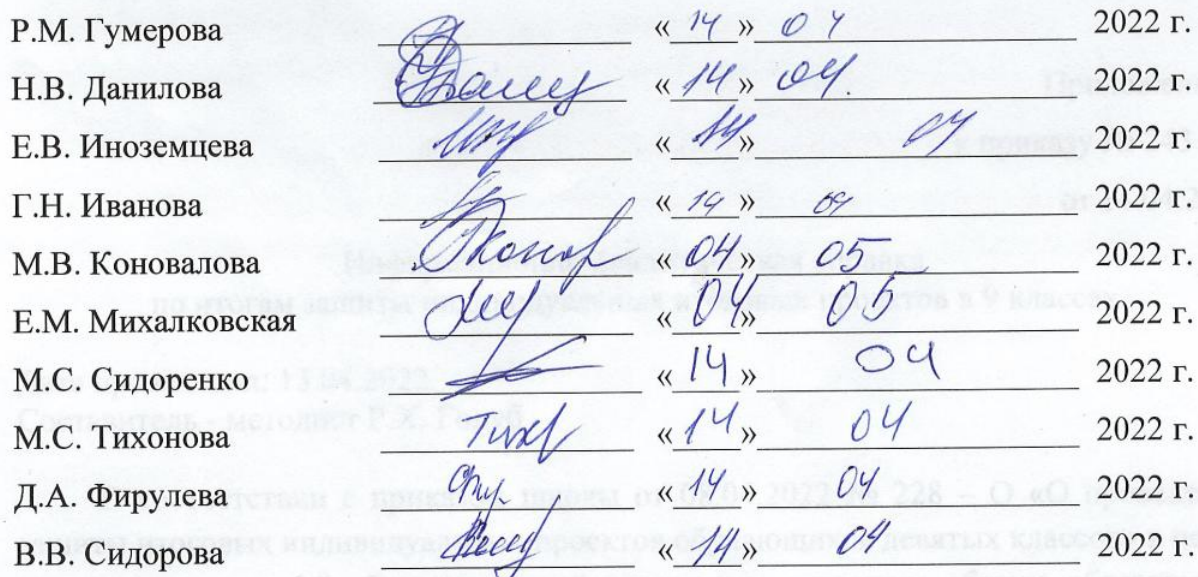 Р.М. Гумерова «14» 04 2022 г.
Н.В. Данилова «14» 04. 2022 г.
Е.В. Иноземцева «14» 04 2022 г.
Г.Н. Иванова «14» 04 2022 г.
М.В. Коновалова «04» 05 2022 г.
Е.М. Михалковская «04» 05 2022 г.
М.С. Сидоренко «14» 04 2022 г.
М.С. Тихонова «14» 04 2022 г.
Д.А. Фирулева «14» 04 2022 г.
В.В. Сидорова «14» 04 2022 г.